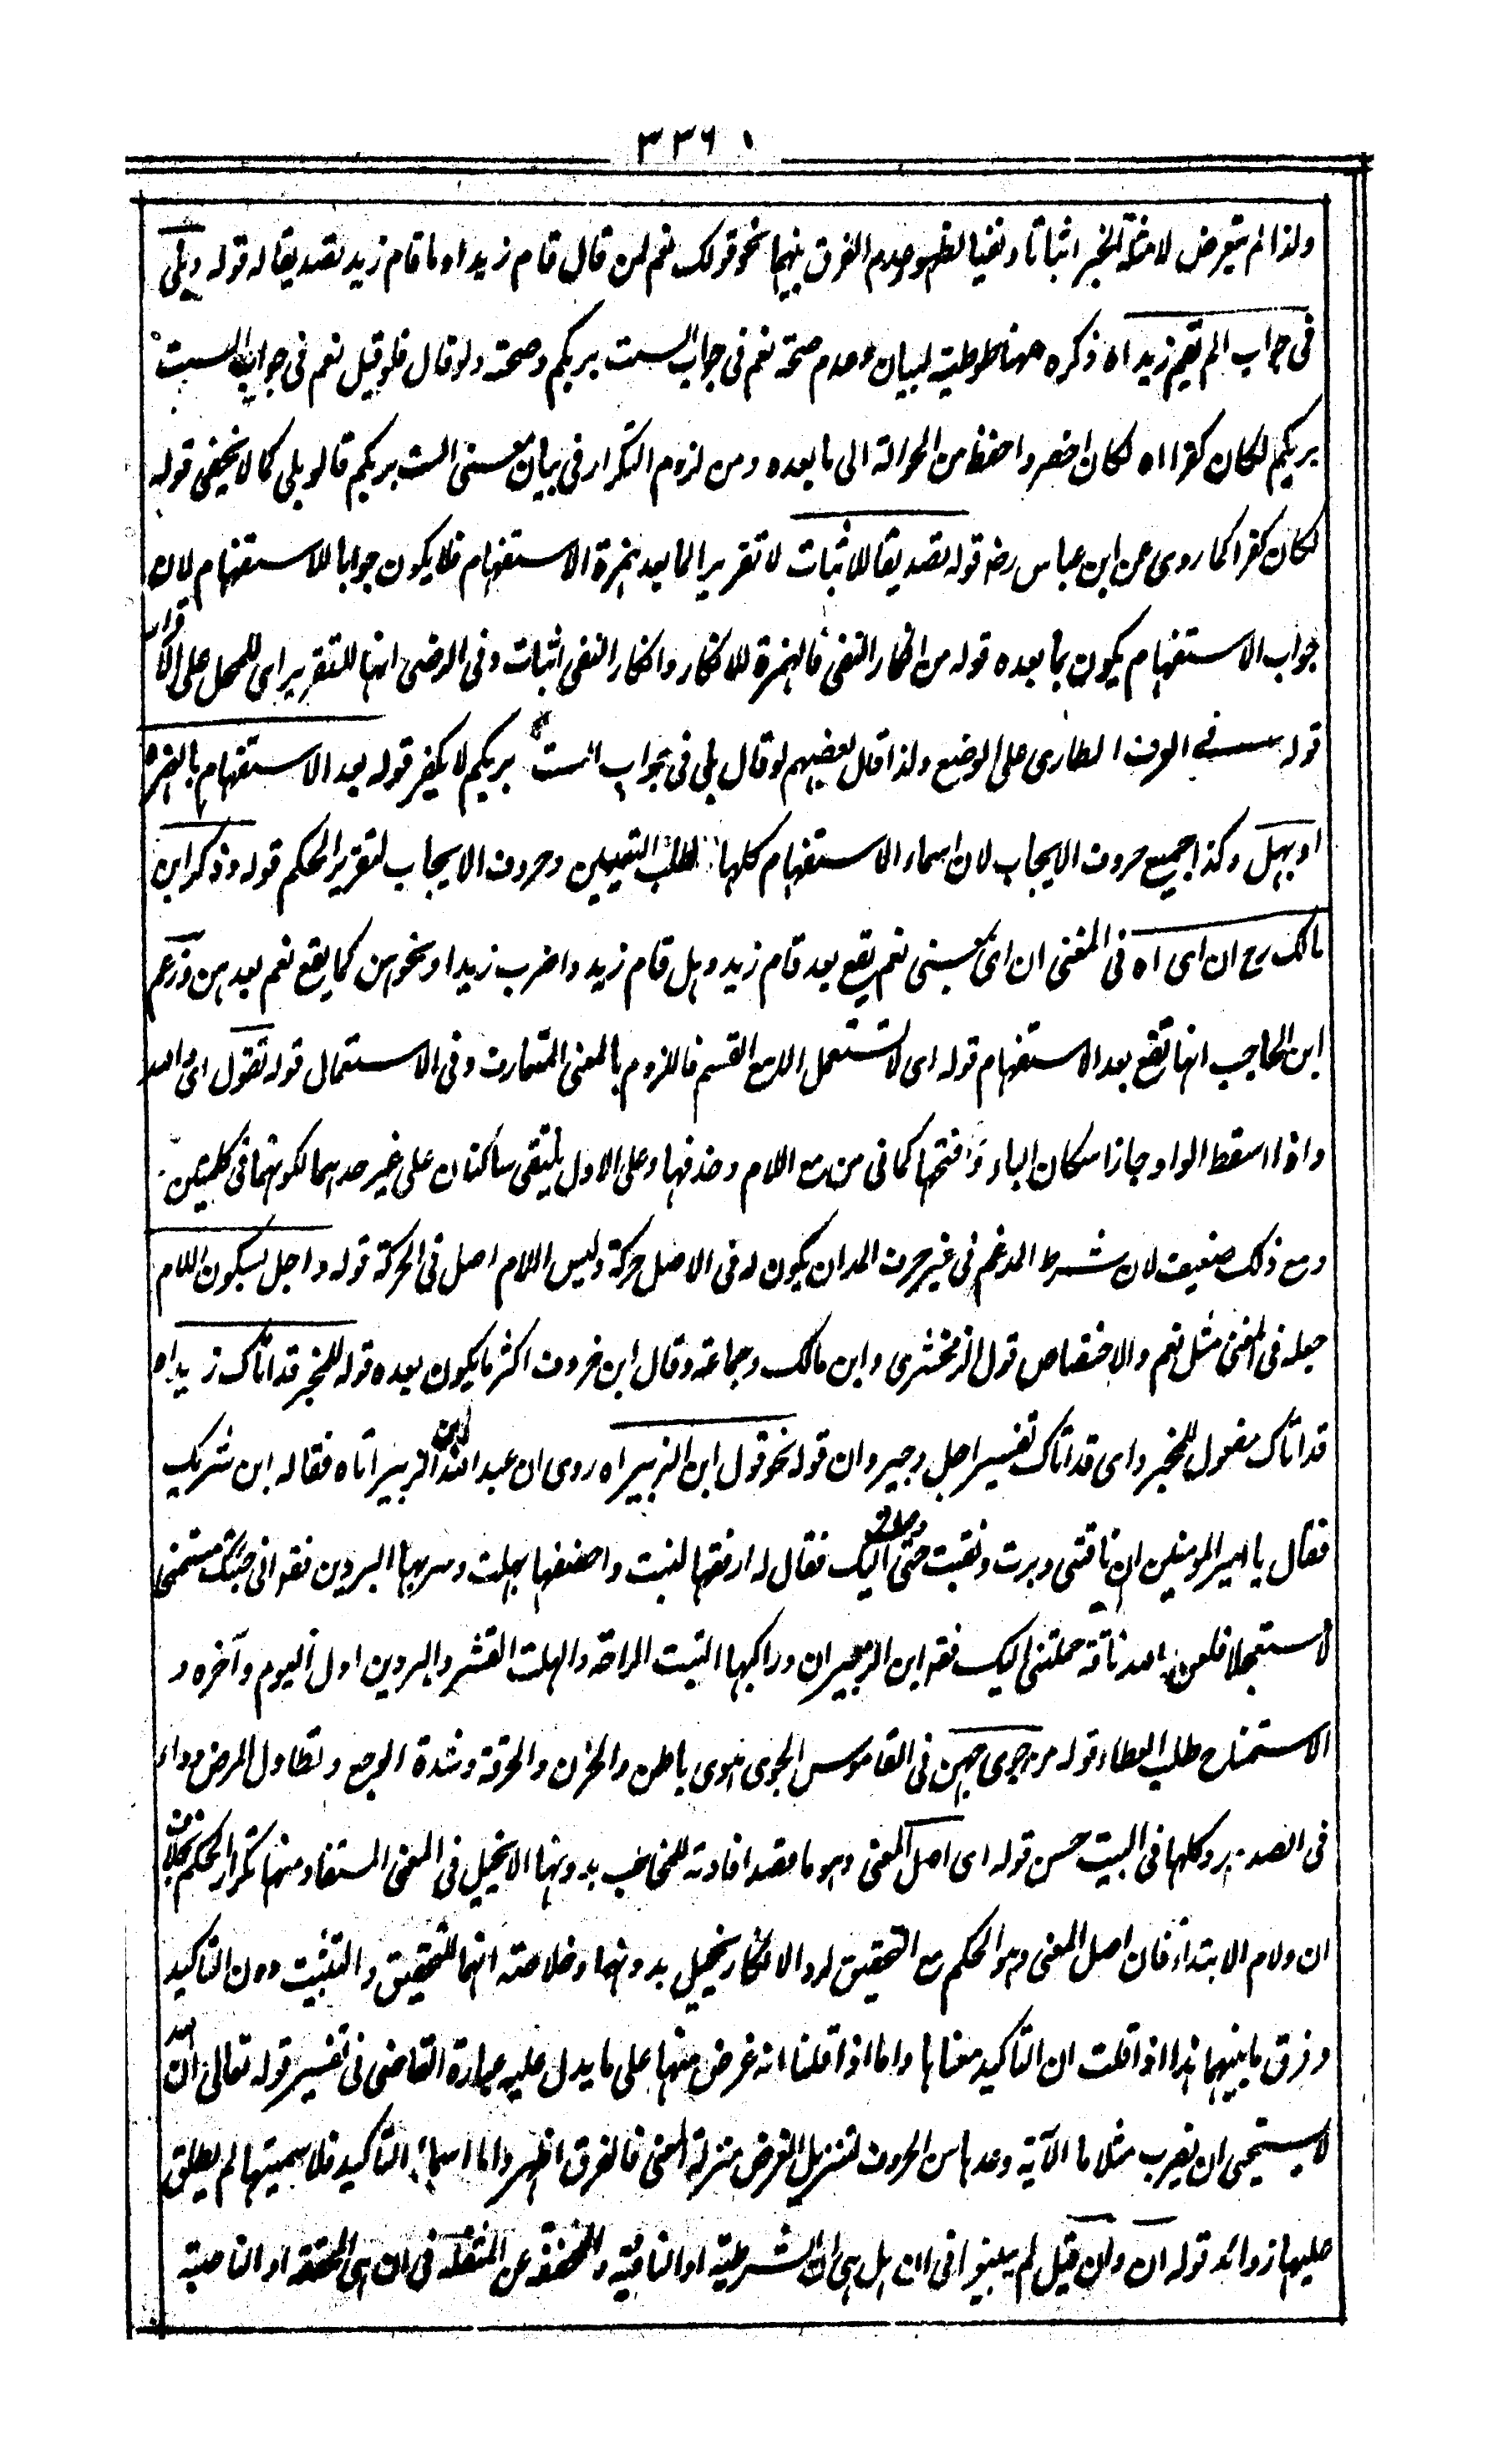 ٣٣٦
ولذا لم يتعرض لامثلة الخبر اثباتا ونفيا لظهور عدم الفرق بينهما نحو قولك نعم لمن قال قام زيد او ما قام زيد تصديقا له قوله وبلى
فى جواب الم يقم زيد اه ذكره ههنا توطية لبيان عدم صحة نعم فى جواب الست بربكم وصحته ولو قال فلو قيل نعم فى جواب الست
بربكم لكان كفرا اه لكان اخصر واحفظ من الحوالة الى ما بعده ومن لزوم التكرار فى بيان معنى الست بربكم قالوا بلى كما لا يخفى قوله
لكان كفرا كما روى عن ابن عباس رضـ قوله تصديقا للاثبات لا تقريرا لما بعد همزة الاستفهام فلا يكون جوابا للاستفهام لان
جواب الاستفهام يكون بما بعده قوله من انكار النفى فالهمزة للانكار وانكار النفى اثبات وفى الرضى انها للتقرير اى للحمل على الاقرار
قوله فى العرف الطارى على الوضع ولذا قال بعضهم لو قال بلى فى جواب الست بربكم لا يكفر قوله بعد الاستفهام بالهمزة
او بهل وكذا جميع حروف الايجاب لان اسماء الاستفهام كلها لطلب التعيين وحروف الايجاب لتقرير الحكم قوله وذكر ابن
مالك رح ان اى اه فى المغنى ان اى بمعنى نعم يقع بعد قام زيد وهل قام زيد واضرب زيدا ونحوهن كما يقع نعم بعدهن وزعم
ابن الحاجب انها تقع بعد الاستفهام قوله اى لا تستعمل الا مع القسم فاللزوم بالمعنى المتعارف وفى الاستعمال قوله تقول اى والله
واذا اسقط الواو جاز اسكان الياء وفتحها كما فى من مع اللام وحذفها وعلى الاول يلتقى ساكنان على غير حدهما لكونهما فى كلمتين
ومع ذلك ضعيف لان شرط المدغم فى غير حرف المد ان يكون له فى الاصل حركة وليس اللام اصل فى الحركة قوله واجل بسكون اللام
جعله فى المغنى مثل نعم والاختصاص قول الزمخشرى وابن مالك وجماعة وقال ابن خروف اكثر ما يكون بعده قوله للمخبر قد اتاك زيد اه
قد اتاك مفعول للمخبر واى قد اتاك تفسير اجل وجير وان قوله نحو قول ابن الزبير اه روى ان عبد الله ابن الزبير اتاه فقاله ابن شريك
فقال يا امير المومنين ان ناقتى دبرت ونقبت حتى وصلت اليك فقال له ارقعها لنبت واخصفها بهلت وسر بها البردين فقال انى جئتك مستمنحا
لا مستعجلا فلعن الله ناقة حملتنى اليك فقال ابن الزبير ان وراكبها النبت المراقة والهلت القشر والبردين اول اليوم وآخره و
الاستمناح طلب العطاء قوله من جوى حبهن فى القاموس الجوى هوى باطن والحزن والحرقة وشدة الوجع وتطاول المرض وداء
فى الصدر وكلها فى البيت حسن قوله اى اصل المعنى وهو ما قصد افادته للمخاطب بدونها لا يخيل فى المعنى المستفاد منها تكرار الحكم بخلاف
ان ولام الابتداء فان اصل المعنى وهو الحكم مع التحقيق لرد الانكار يخيل بدونها وخلاصته انهما للتحقيق والتثبيت دون التاكيد
وفرق ما بينهما هذا اذا قلت ان التاكيد معناها واما اذا قلنا انه غرض منها على ما يدل عليه عبارة القاضى فى تفسير قوله تعالى ان الله
لا يستحيى ان يضرب مثلا ما الآية وعدها من الحروف لتنزيل الغرض منزلة المعنى فالفرق اظهر واما اسماء التاكيد فلاسميتها لم يطلق
عليها زوائد قوله ان وان قيل لم يبينوا فى ان هل هى ان الشرطية او النافية والمخففة عن المثقلة فى ان هى المخففة او الناصبة